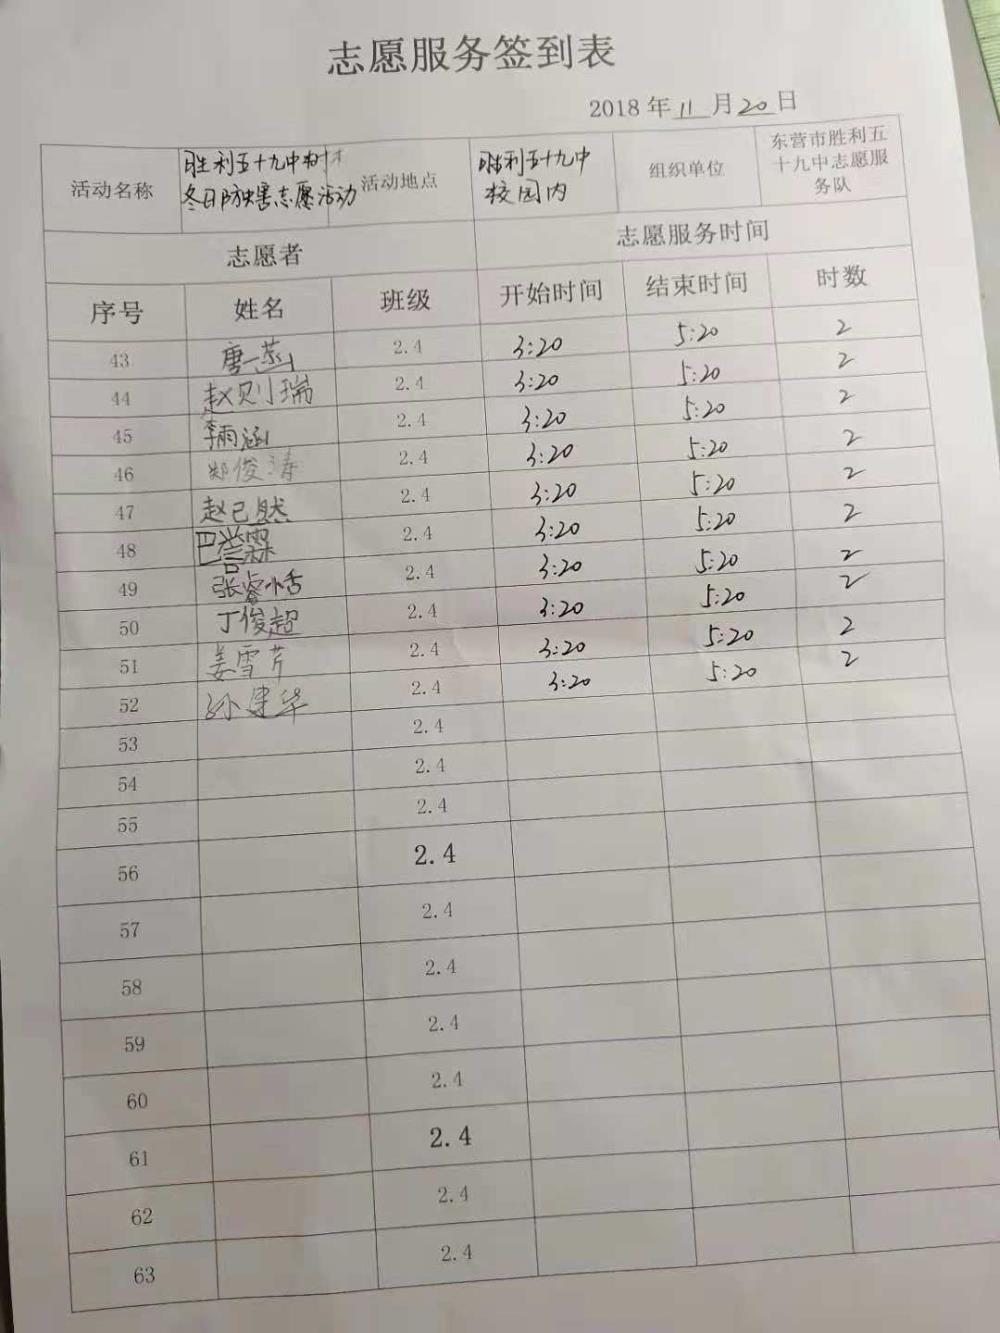 志愿服务签到表
2018 年 11 月 20 日
活动名称 胜利五十九中树木 冬日防蚜害志愿活动 活动地点 胜利五十九中 校园内 组织单位 东营市胜利五十九中志愿服务队
志愿者 志愿服务时间
序号 姓名 班级 开始时间 结束时间 时数
43 唐一菡 2.4 3:20 5:20 2
44 赵则瑞 2.4 3:20 5:20 2
45 李雨涵 2.4 3:20 5:20 2
46 郑俊涛 2.4 3:20 5:20 2
47 赵已然 2.4 3:20 5:20 2
48 巴誉霖 2.4 3:20 5:20 2
49 张睿恬 2.4 3:20 5:20 2
50 丁俊超 2.4 3:20 5:20 2
51 姜雪芹 2.4 3:20 5:20 2
52 孙建华 2.4 3:20 5:20 2
53 2.4
54 2.4
55 2.4
56 2.4
57 2.4
58 2.4
59 2.4
60 2.4
61 2.4
62 2.4
63 2.4